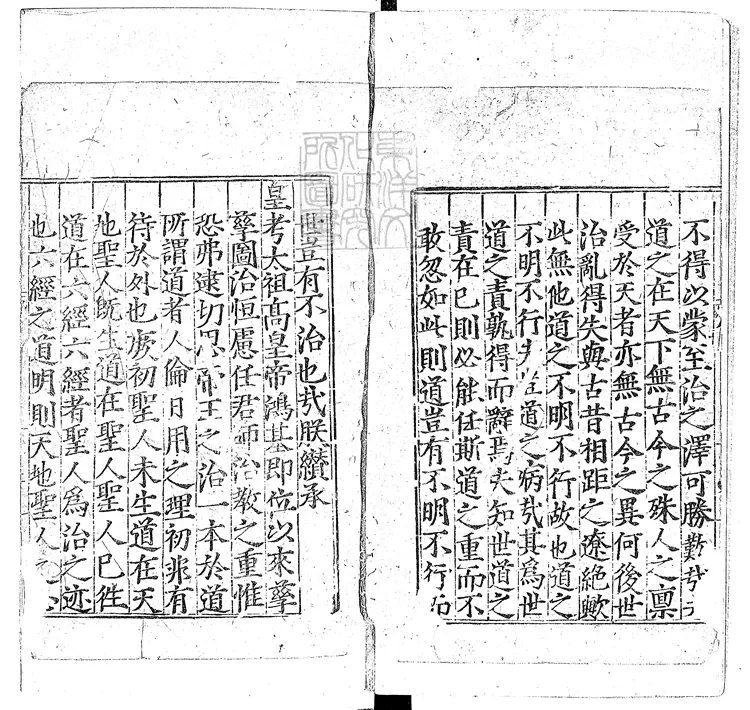 不得以蒙至治之澤可勝歎哉夫
道之在天下無古今之殊人之禀
受於天者亦無古今之異何後世
治亂得失與古昔相距之遼絶歟
此無他道之不明不行故也道之
不明不行夫豈道之病哉其爲世
道之責孰得而辭焉夫知世道之
責在已則必能任斯道之重而不
敢忽如此則道豈有不明不行而
世豈有不治也哉朕纘承
皇考太祖高皇帝鴻基即位以來孳
孳圖治恒慮任君師治教之重惟
恐弗逮切思帝王之治一本於道
所謂道者人倫日用之理初非有
待於外也厥初聖人未生道在天
地聖人旣生道在聖人聖人已徃
道在六經六經者聖人爲治之迹
也六經之道明則天地聖人之
東洋文化研究所